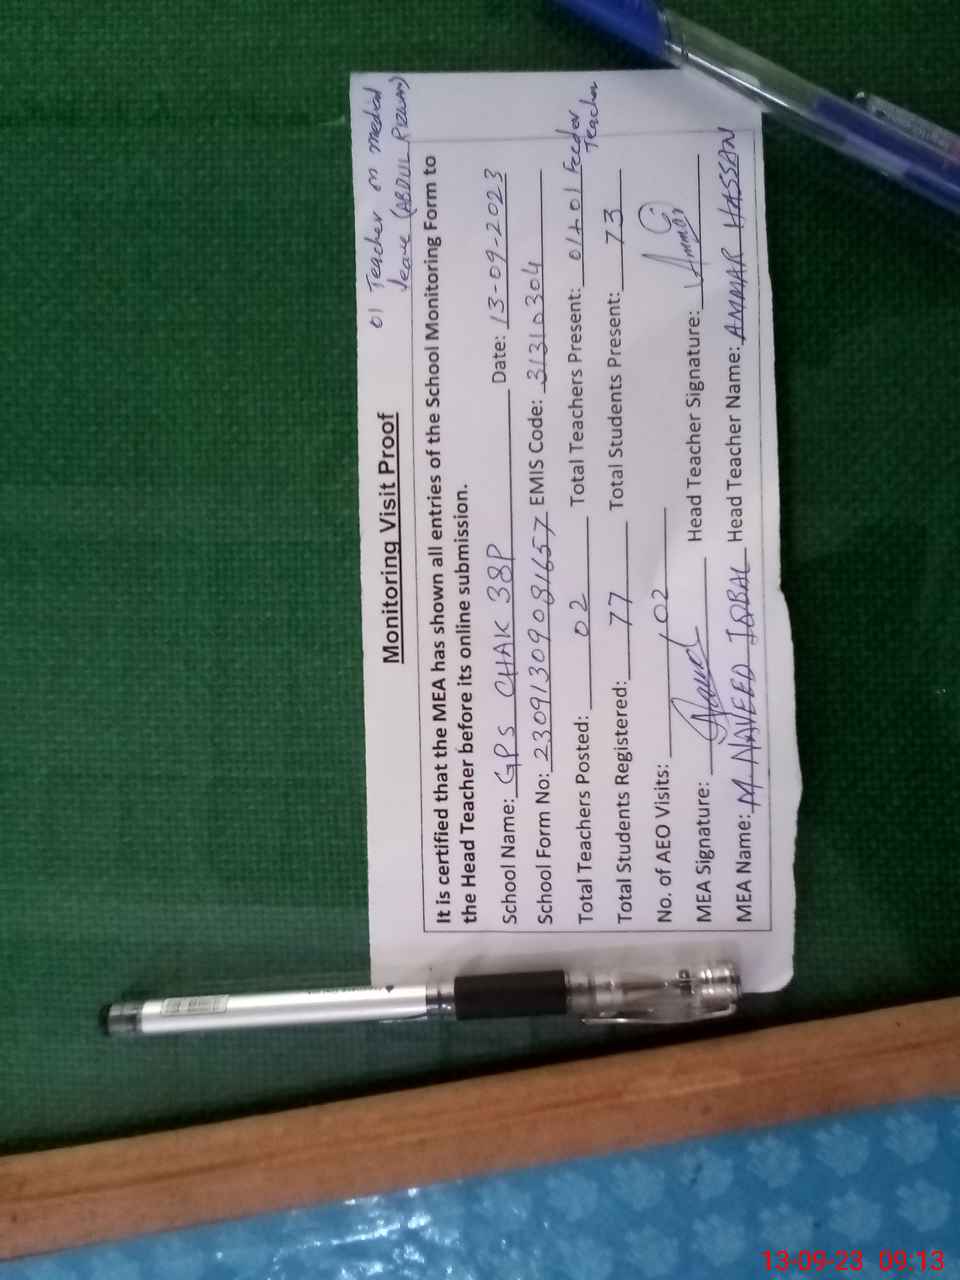 01 Teacher on medical
leave (ABDUL RIZWAN)
Monitoring Visit Proof
It is certified that the MEA has shown all entries of the School Monitoring Form to
the Head Teacher before its online submission.
School Name: GPS CHAK 38P Date: 13-09-2023
School Form No: 23091309081657 EMIS Code: 31310304
Total Teachers Posted: 02 Total Teachers Present: 01+01 Feeder Teacher
Total Students Registered: 77 Total Students Present: 73
No. of AEO Visits: 02
MEA Signature: Naveed Head Teacher Signature: Ammar
MEA Name: M. NAVEED IQBAL Head Teacher Name: AMMAR HASSAN
13-09-23 09:13